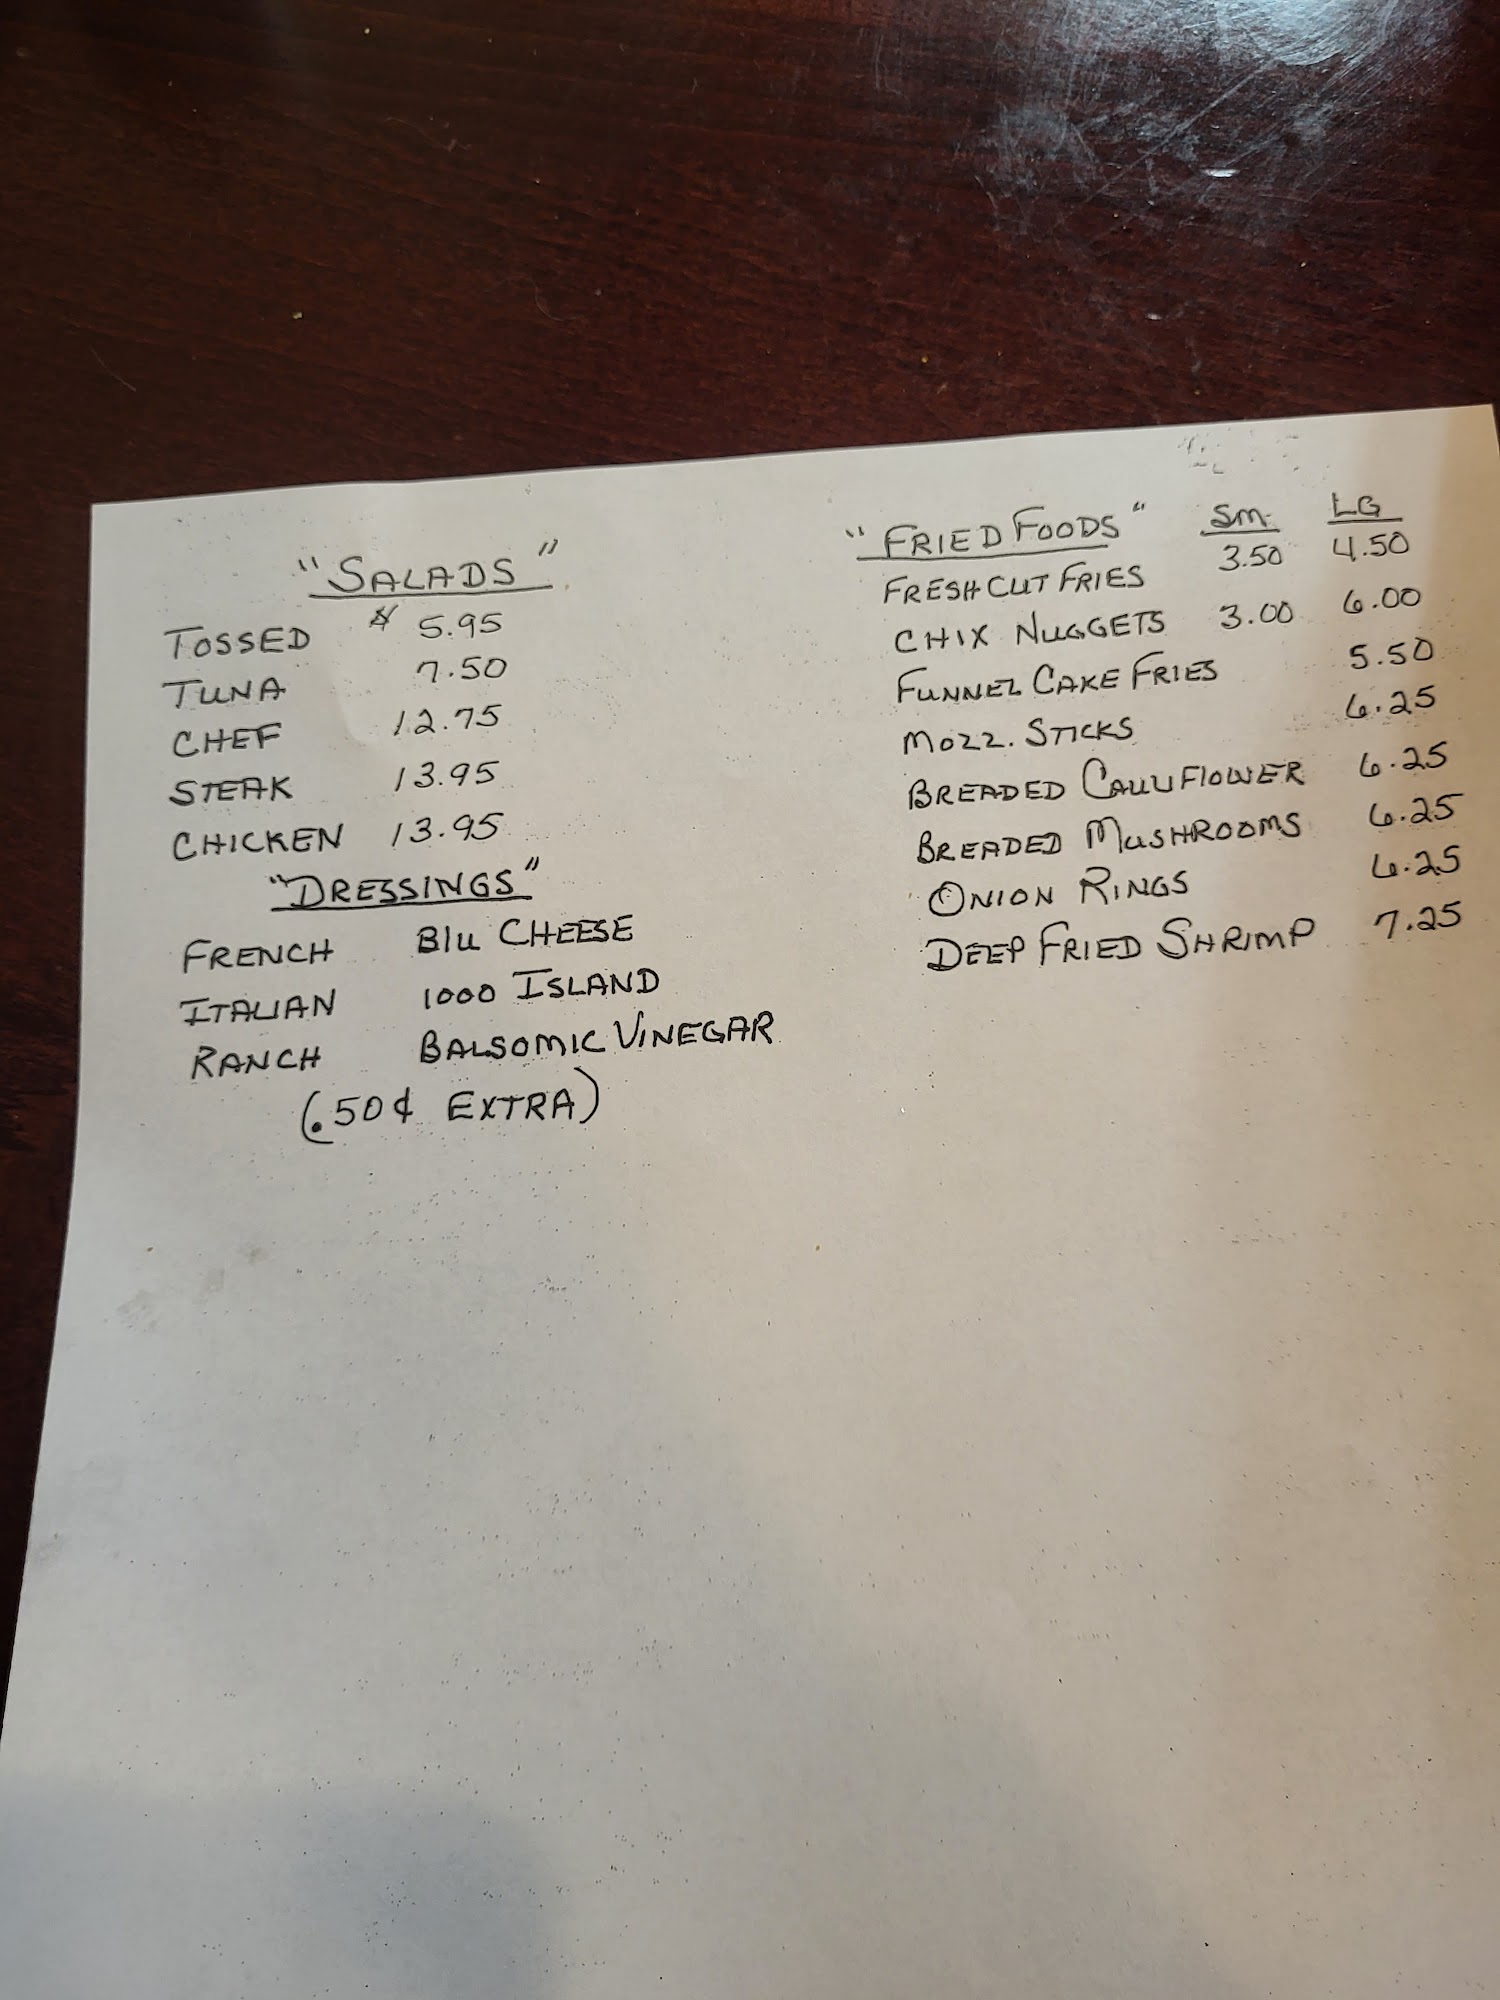 "SALADS"
TOSSED $ 5.95
TUNA 7.50
CHEF 12.75
STEAK 13.95
CHICKEN 13.95
"DRESSINGS"
FRENCH BLU CHEESE
ITALIAN 1000 ISLAND
RANCH BALSOMIC VINEGAR
(.50¢ EXTRA)
"FRIED FOODS" SM. LG
FRESH CUT FRIES 3.50 4.50
CHIX NUGGETS 3.00 6.00
FUNNEL CAKE FRIES 5.50
MOZZ. STICKS 6.25
BREADED CAULIFLOWER 6.25
BREADED MUSHROOMS 6.25
ONION RINGS 6.25
DEEP FRIED SHRIMP 7.25